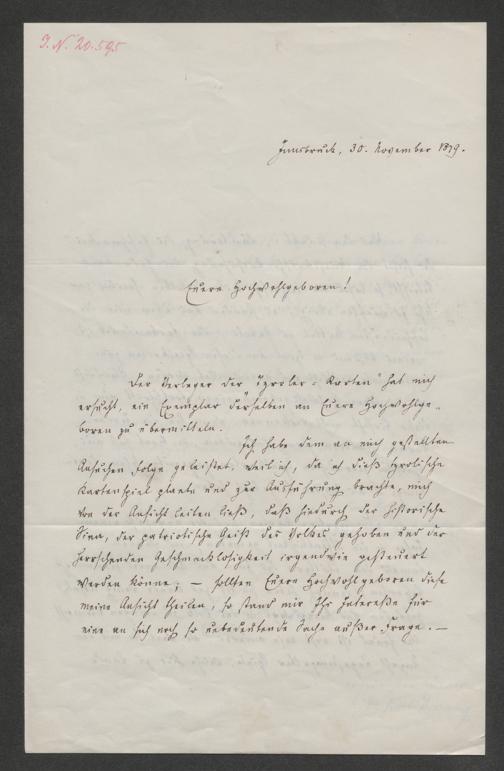 J. N. 20.595
Innsbruck, 30. November 1879.
Euere Hochwohlgeboren!
Der Verleger der "Tyroler-Karten" hat mich
ersucht, ein Exemplar derselben an Euere Hochwohlge-
boren zu übermitteln.
Ich habe dem an mich gestellten
Ansuchen Folge geleistet, weil ich, da ich dieß tyrolische
Kartenspiel plante und zur Ausführung brachte, mich
von der Ansicht leiten ließ, daß hiedurch der historische
Sinn, der patriotische Geist des Volkes gehoben und der
herrschenden Geschmacklosigkeit irgendwie gesteuert
werden könne; — sollten Euere Hochwohlgeboren diese
meine Ansicht theilen, so stand mir Ihr Interesse für
eine an sich noch so unbedeutende Sache außer Frage. —